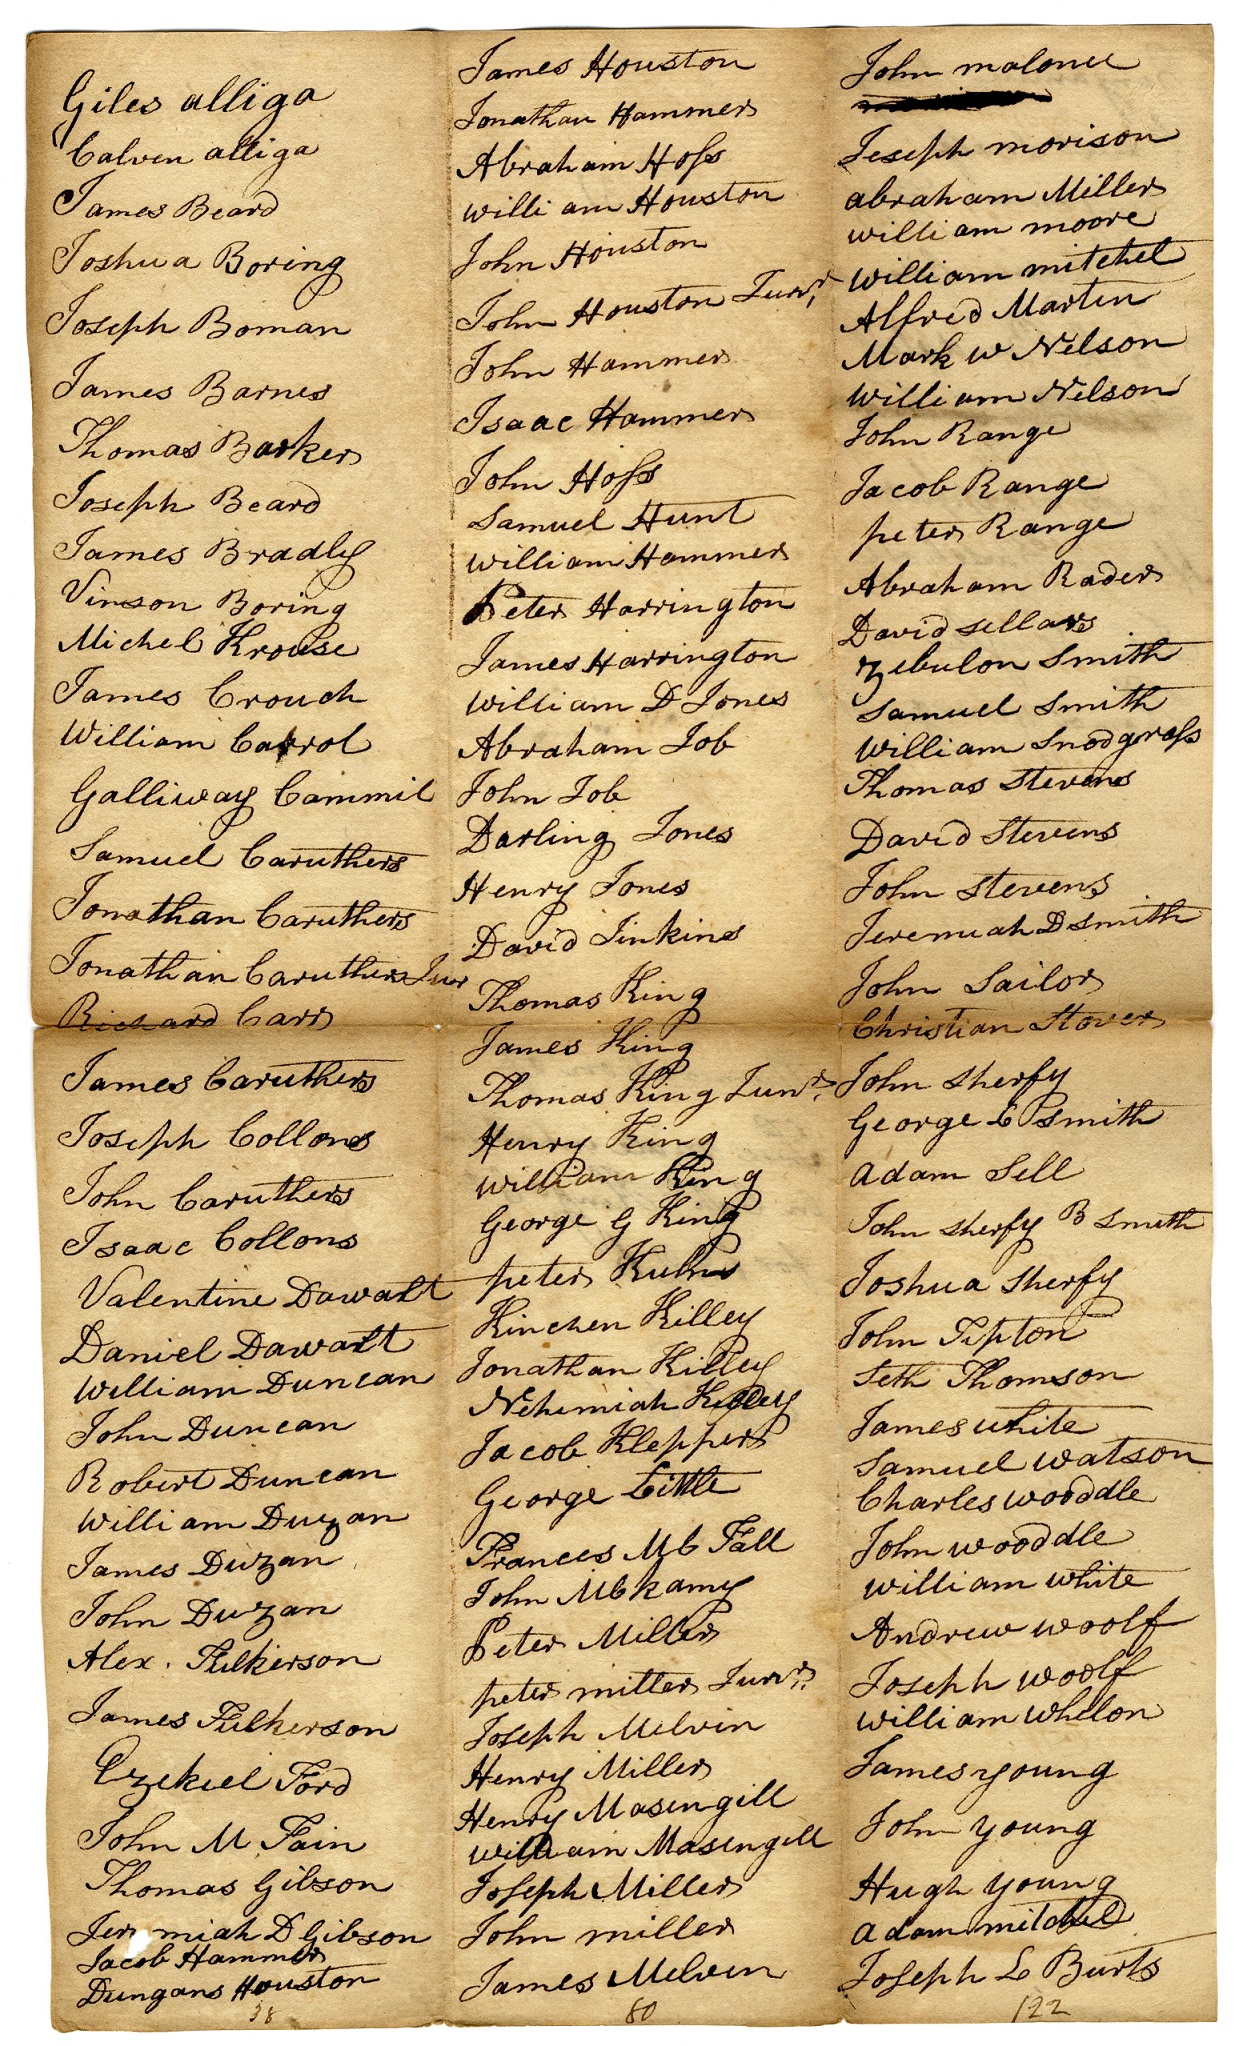 Giles alliga
Calven alliga
James Beard
Joshua Boring
Joseph Boman
James Barnes
Thomas Barker
Joseph Beard
James Bradly
Vinson Boring
Michel Krouse
James Crouch
William Carrol
Galliway Cammil
Samuel Caruthers
Jonathan Caruthers
Jonathan Caruthers Jur
Richard Carr
James Caruthers
Joseph Collons
John Caruthers
Isaac Collons
Valentine Dawalt
Daniel Dawalt
William Duncan
John Duncan
Robert Duncan
William Duzan
James Duzan
John Duzan
Alex. Fulkerson
James Fulkerson
Ezekiel Ford
John M Fain
Thomas Gibson
Jer miah D Gibson
Jacob Hammer
Dungans Houston
38
James Houston
Jonathan Hammer
Abraham Hoss
William Houston
John Houston
John Houston Junr.
John Hammer
Isaac Hammer
John Hoss
Samuel Hunt
William Hammer
Peter Harrington
James Harrington
William D Jones
Abraham Job
John Job
Darling Jones
Henry Jones
David Jinkins
Thomas King
James King
Thomas King Junr.
Henry King
William King
George G King
peter Kuhns
Kinchen Killey
Jonathan Killey
Nehemiah Killey
Jacob Klepper
George Little
Frances Mc Fall
John Mckamy
Peter Miller
peter miller Junr.
Joseph Melvin
Henry Miller
Henry Masengill
William Masengill
Joseph Miller
John miller
James Melven
80
John malonee
Joseph morison
abraham Miller
william moore
William mitchel
Alfred Martin
Mark W Nelson
William Nelson
John Range
Jacob Range
peter Range
Abraham Rader
David sellars
Zebulon Smith
Samuel Smith
William Snodgrass
Thomas Stevens
David Stevens
John Stevens
Jeremiah D Smith
John Sailor
Christian Stover
John Sherfy
George L Smith
adam Sell
John Sherfy B Smith
Joshua Sherfy
John Tipton
Seth Thomson
James White
Samuel Watson
Charles Wooddle
John Wooddle
William White
Andrew Woolf
Joseph Woolf
William Whelon
James Young
John Young
Hugh Young
adam mitchel
Joseph L Burts
122